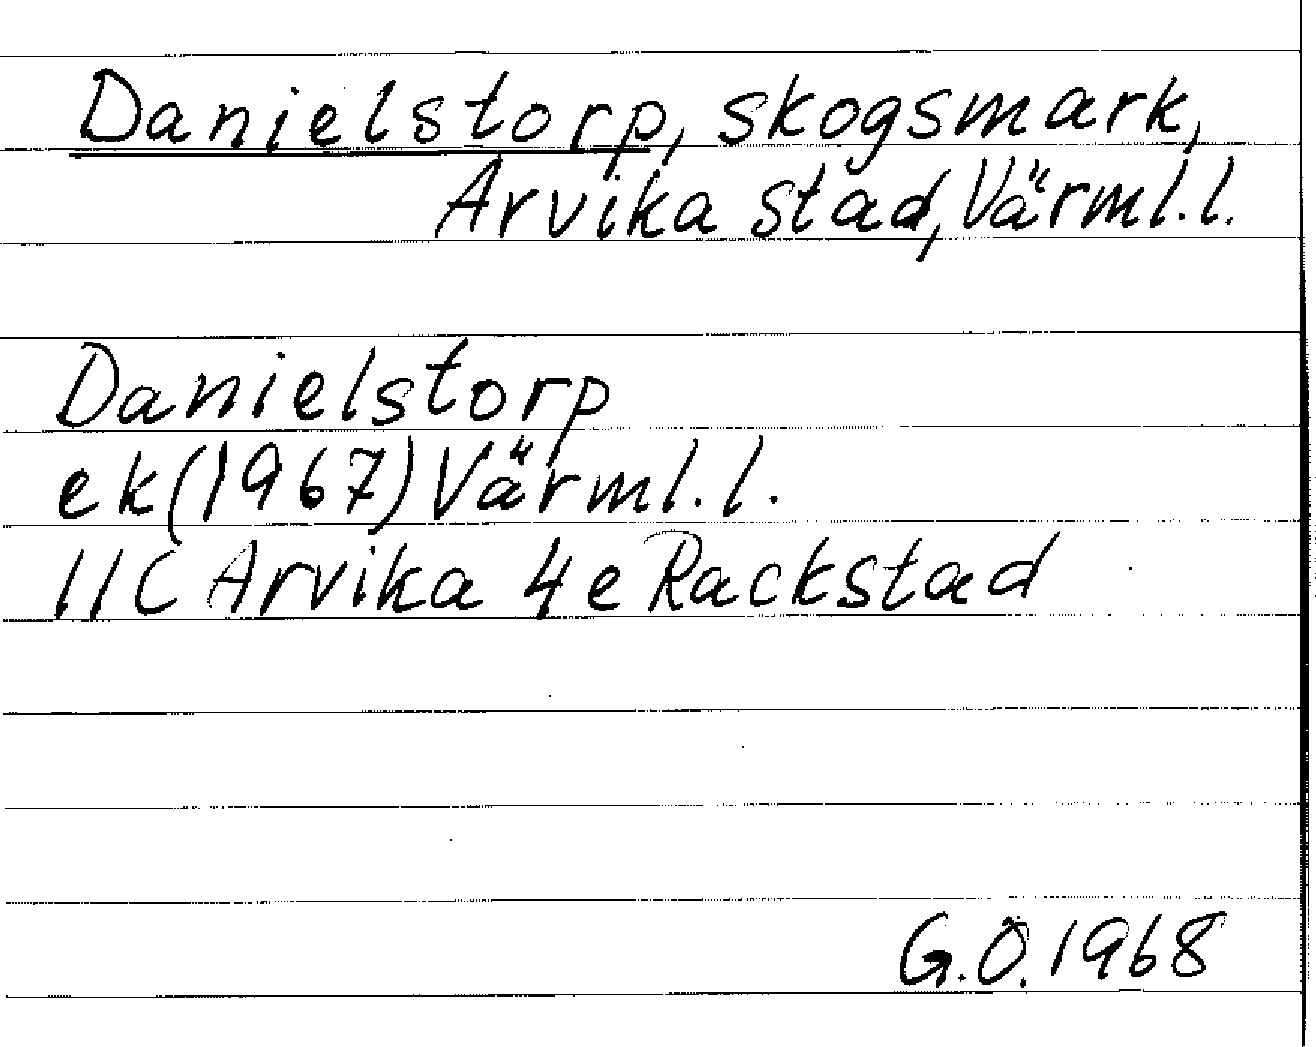 Danielstorp, skogsmark,
Arvika stad, Värml.l.
Danielstorp
ek(1967) Värml.l.
11C Arvika 4e Rackstad
G.Ö.1968